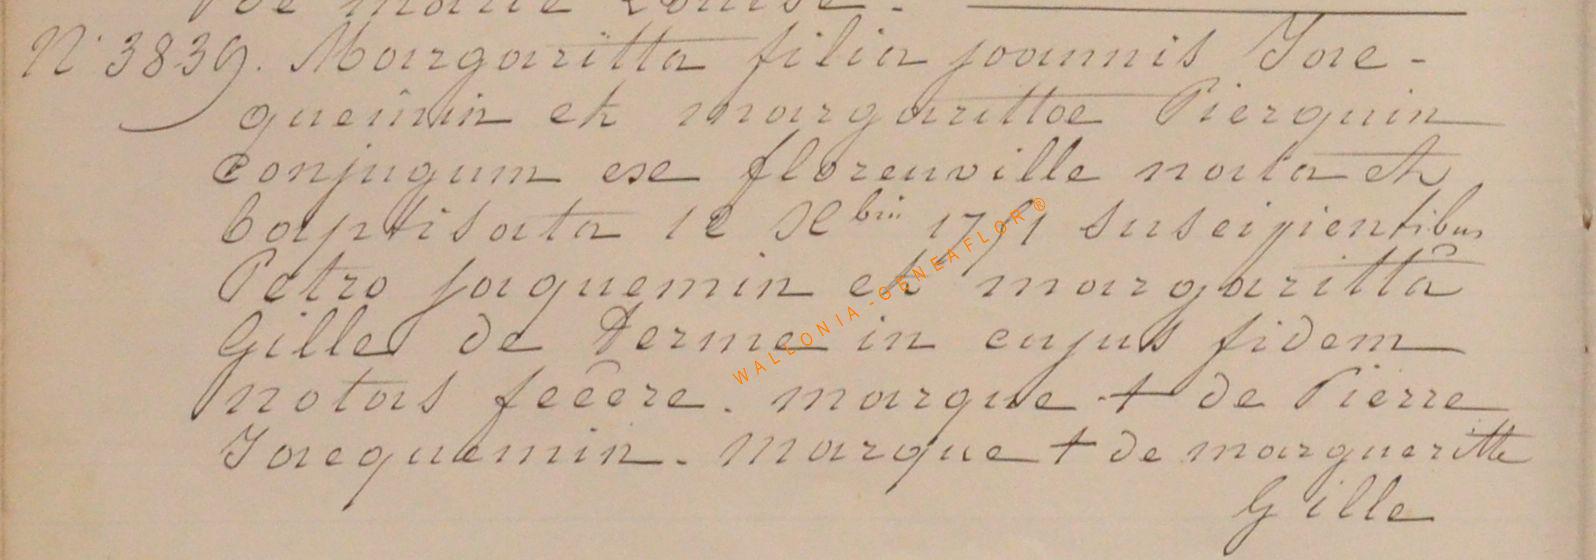 de marie Louise. -
N° 3839. Margaritta filia joannis Jac-
quemin et margarittae Pierquin
conjugum ex florenville nata et
baptisata 12 Xbris 1791 suscipientibus
Petro jaquemin et margarittâ
Gille de Terme in cujus fidem
notas fecêre. marque + de Pierre
Jacquemin. Marque + de margueritte
Gille
WALLONIA-GENEAFLOR®